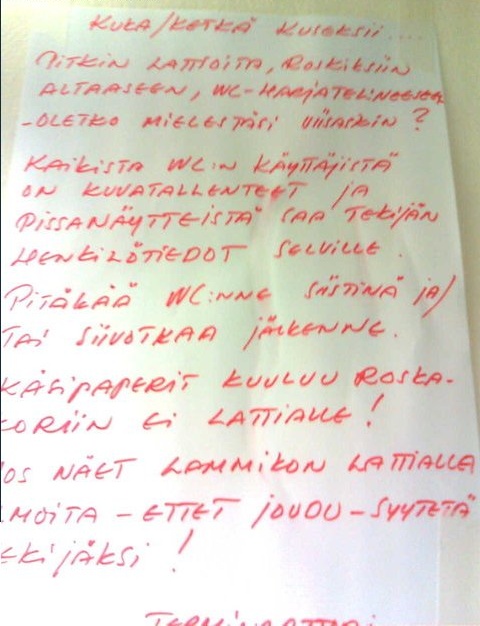 KUKA/KETKÄ KUSEKSII....
PITKIN LATTIOITA, ROSKIKSIIN
ALTAASEEN, WC-HARJATELINEESEEN
-OLETKO MIELESTÄSI VIISASKIN?
KAIKISTA WC:N KÄYTTÄJISTÄ
ON KUVATALLENTEET JA
PISSANÄYTTEISTÄ SAA TEKIJÄN
HENKILÖTIEDOT SELVILLE.
PITÄKÄÄ WC:NNE SIISTINÄ JA/
TAI SIIVOTKAA JÄLKENNE.
KÄSIPAPERIT KUULUU ROSKA-
KORIIN EI LATTIALLE!
JOS NÄET LAMMIKON LATTIALLA
ILMOITA - ETTET JOUDU - SYYTETÄ
TEKIJÄKSI!